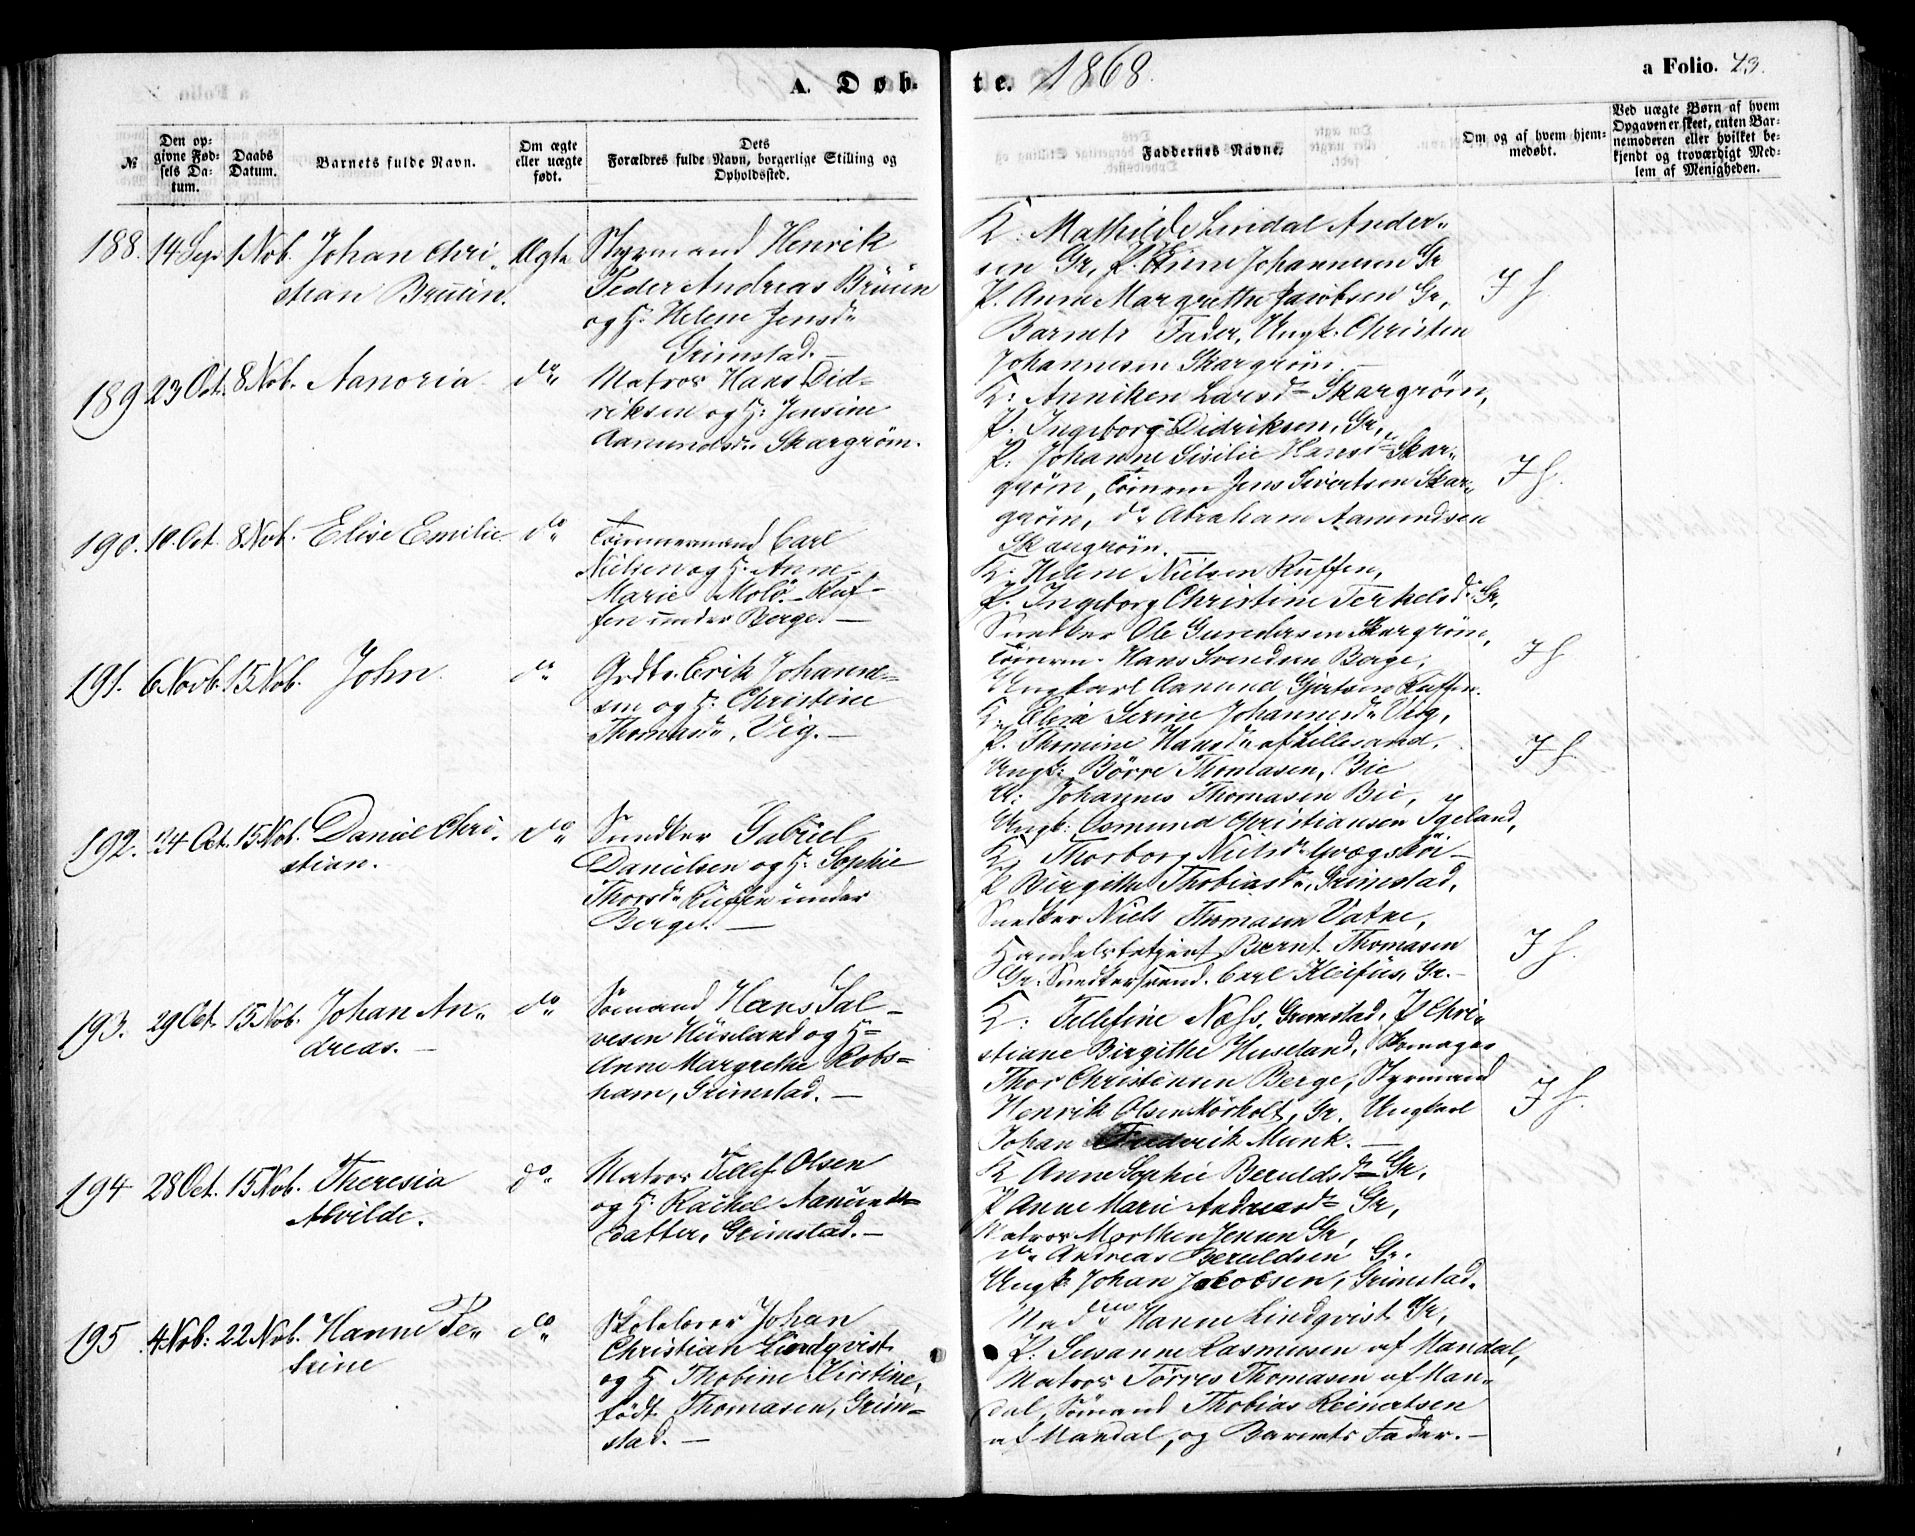 A. Døb-
te. 1868.
a Folio. 73.
№
Den op-
givne Fød-
sels Da-
tum.
Daabs
Datum.
Barnets fulde Navn.
Om ægte
eller uægte
født.
Dets
Forældres fulde Navn, borgerlige Stilling og
Opholdssted.
Faddernes Navne.
Om og af hvem hjem-
medøbt.
Ved uægte Børn af hvem
Opgaven er skeet, enten Bar-
nemoderen eller hvilket be-
kjendt og troværdigt Med-
lem af Menigheden.
188. 14 Sep. 1 Nob. Johan Chri-
stian Bruun.
Ægte
Styrmand Henrik
Peder Andreas Brüün
og H. Helene Jensd.
Grimstad.—
K: Mathilde Lindal Ander-
sen Gr, P. Johannesen Gr
P. Anne Margrethe Jacobsen Gr,
Barnets Fader, Ungk. Christen
Johannesen Skargrøm.—
J H.
189 23 Oct. 8 Nob. Aanoria. do
Matros Hans Did-
riksen og H: Jensine
Aamundsd. Skargrøm.
K: Anniken Larsd. Skargrøm,
P. Ingeborg Didriksen, Gr,
P: Johanne Sisilie Hansd. Skar-
grøm, Tømrm Jens Sivertsen Skar-
grøm, do Abraham Aamundsen
Skargrøm.—
J H.
190. 10. Oct. 8 Nob. Elise Emilie. do
Tømmermand Carl
Nielsen og H. Anne
Marie Molø.- Ruf-
fen under Berge.—
K: Helene Nielsen Ruffen,
P. Ingeborg Christine Terkelsd. Gr,
Snedker Ole Gundersen Skargrøm,
Tømrm. Hans Svendsen Berge,
Ungkarl Aanund Gjertsen Ruffen.
J H
191. 6 Novb. 15 Nob. John. do
Grdbr. Erik Johanne-
sen og H: Christine
Thomasd., Vig.—
K. Serine Johannesd. Vig,
P. Thomine Hansd. af Lillesand,
Ungk: Børre Thomasen, Bie
U: Johannes Thomasen Bie,
Ungk: Osmund Christiansen Igeland,
J H.
192. 24 Oct. 15 Nob. Daniel Chri-
stian.
do
Snedker Gabriel
Danielsen og H: Sophie
Thorsd. Ruffen under
Berge.—
K, Thorborg Nielsd.
P Birgithe Thobiasd., Grimstad,
Snedker Niels Thomasen Vatne,
Handelsbetjent Bernt. Thomasen
Gr. Snedkersvend. Carl Gr.—
J H.
193. 29 Oct. 15 Nob. Johan An-
dreas.—
do
Sømand Hans Sal-
vesen Hüseland og H-
Anne Margrethe Robs-
ham, Grimstad.—
K: Tellefine Næss, Grimstad, P Chri-
stiane Birgithe Huseland,
Thor Christensen Berge, Styrmand
Henrik Olsen Mørholt, Gr. Ungkarl
Johan Fredrik Munk.—
J H.
194 28 Oct. 15 Nob. Theresia
Alvilde.
do
Matros Tellef Olsen
og H: Rachel Aanunds-
datter, Grimstad.—
K Anne Sophie Beruldsd. Gr,
P Anne Marie Andreasd. Gr,
Matros Morthen Jensen Gr,
do Andreas Beruldsen Gr.
Ungk: Johan Jacobsen, Grimstad.
195 4 Nob: 22 Nob. Hanne Pe-
trine
do
Skolelærer Johan
Christian Lindqvist
og H Thobine Kirstine,
født Thomasen, Grim-
stad.—
Madm Hanne Lindqvist Gr,
P: Susanne Rasmusen af Mandal,
Matros Tørres Thomasen af Man-
dal, Sømand Thobias Reinertsen
af Mandal, og Barnets Fader.—